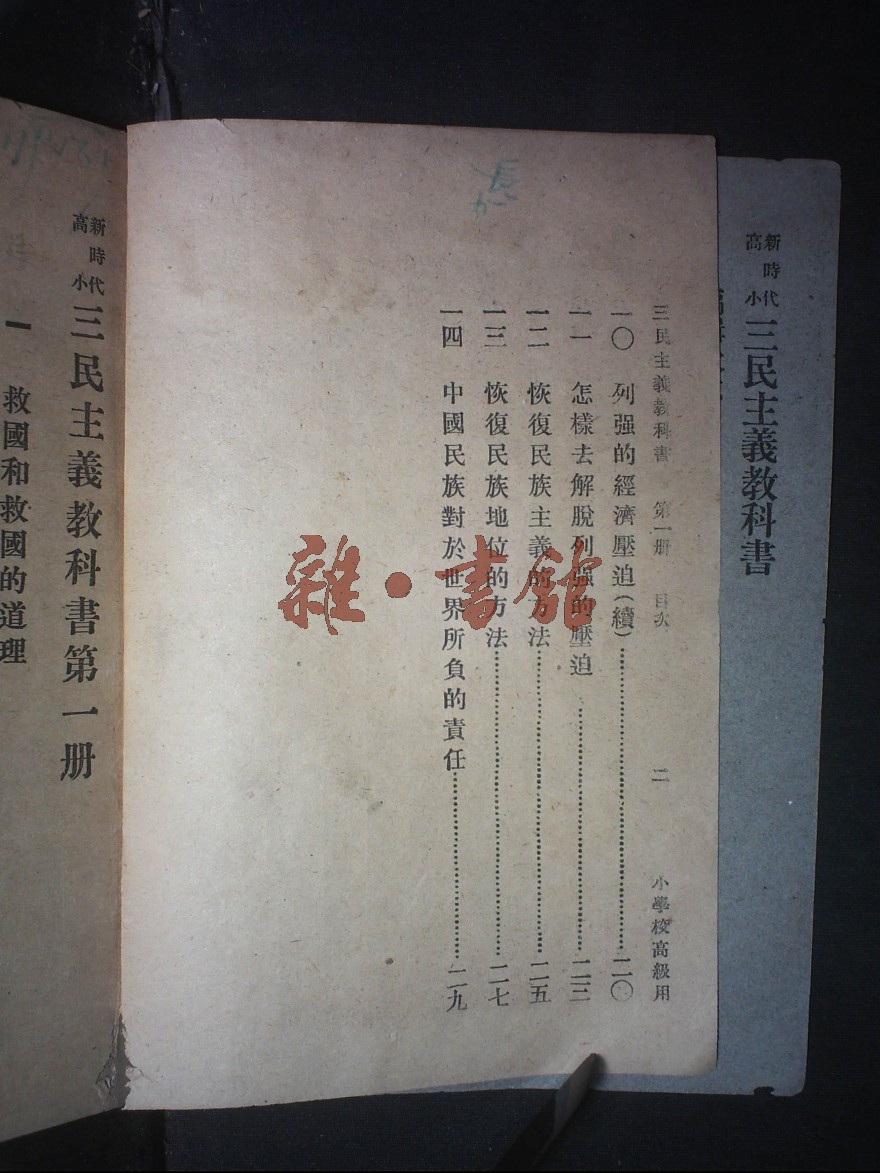 新時代
高小
三民主義教科書
三民主義教科書 第一册 目次 二 小學校高級用
一〇 列强的經濟壓迫(續)…………二〇
一一 怎樣去解脫列强的壓迫…………二三
一二 恢復民族主義的方法…………二五
一三 恢復民族地位的方法…………二七
一四 中國民族對於世界所負的責任…………二九
新時代
高小
三民主義教科書第一册
一 救國和救國的道理
雜·書館